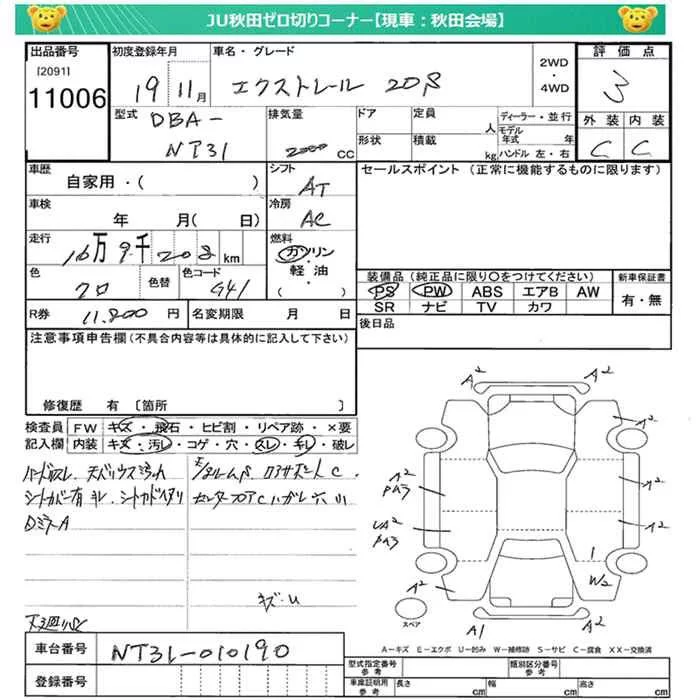 JU秋田ゼロ切りコーナー【現車：秋田会場】
出品番号 初度登録年月 車名・グレード 評価点
[2091] 11006
19 11月 エクストレール 20S 2WD・4WD 3
型式 DBA-NT31 排気量 2000 CC ドア 定員 人 ディーラー・並行 外装 内装
形状 積載 kg モデル年式 年 ハンドル 左・右 C C
車歴 自家用・( ) シフト AT セールスポイント (正常に機能するものに限ります)
車検 年 月(日) 冷房 AC
走行 16万9千208km 燃料 ガソリン・軽油・( )
色 色替 色コード G41
装備品 (純正品に限り○をつけてください) 新車保証書
PS PW ABS エアB AW 有・無
SR ナビ TV カワ
R券 11,800円 名変期限 月 日 後日品
注意事項申告欄(不具合内容等は具体的に記入して下さい)
修復歴 有〔箇所 〕
検査員記入欄 FW キズ・飛石・ヒビ割・リペア跡・×要
内装 キズ・汚レ・コゲ・穴・スレ・キレ・破レ
シートカバー有 キレ
DミラーA
キズ・U
A2 A2
A2
A2 PA3 A2
UA2 PA3 A2
A2 W2
A1 A2
スペア
A－キズ E－エクボ U－凹み W－補修跡 S－サビ C－腐食 XX－交換済
車台番号 NT31-010190
登録番号
型式指定番号参考 類別区分番号参考
車庫証明用参考 長さ cm 幅 cm 高さ cm